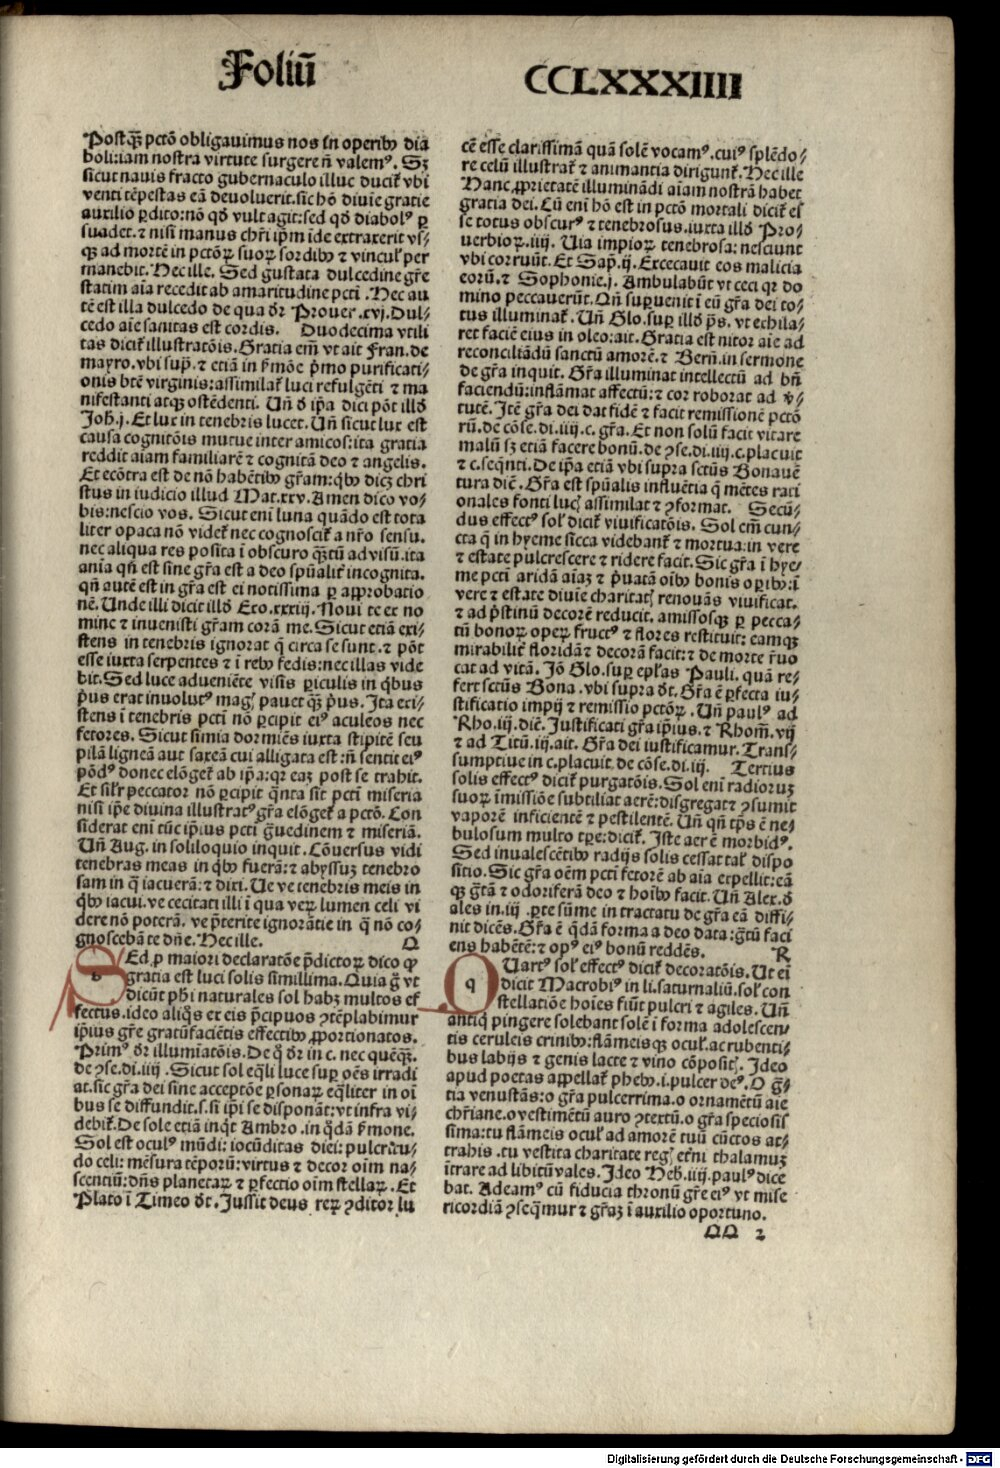 Foliū
CCLXXXIIII
Postq̄ꝫ pctō obligauimus nos in operibꝰ dia
boli: iam nostra virtute surgere n̄ valemꝰ. Sꝫ
sicut nauis fracto gubernaculo illuc ducit᷑ vbi
venti tēpestas eā deuoluerit. sic hō diuine gratie
auxilio ꝑdito: nō qd̓ vult agit: sed qd̓ diabolꝰ ꝑ
suadet. ⁊ nisi manus chr̄i ip̄m inde extraxerit vs⸗
qꝫ ad mortē in pctōꝝ suoꝝ sordibꝰ ⁊ vincul᷑ per
manebit. Hec ille. Sed gustata dulcedine gr̄e
statim aīa recedit ab amaritudine pcti. Hec au
tē est illa dulcedo de qua dr̄ Prouer. xvj. Dul⸗
cedo aīe sanitas est cordis. Duodecima vtili
tas dicit᷑ illustratōis. Gratia em̄ vt ait Fran. de
mayro. vbi supͣ. ⁊ etiā in ẜmōe pͥmo purificati⸗
onis btē virginis: assimilat᷑ luci refulgēti ⁊ ma
nifestanti atqꝫ ostēdenti. Un̄ d̓ ip̄a dici pōt illd̓
Joh̄. j. Et lux in tenebris lucet. Un̄ sicut lux est
causa cognitōis mutue inter amicos: ita gratia
reddit aīam familiarē ⁊ cognitā deo ⁊ angelis.
Et ecōtra est de nō habētibꝰ gr̄am: qͥbꝰ dicꝫ chri
stus in iudicio illud Mat. xxv. Amen dico vo⸗
bis: nescio vos. Sicut enī luna quādo est tota
liter opaca nō videt᷑ nec cognoscit᷑ a nr̄o sensu.
nec aliqua res posita ī obscuro qͣꝫtū ad visū. ita
anīa qn̄ est sine gr̄a est a deo spūalit᷑ incognita.
qn̄ autē est in gr̄a est ei notissima ꝑ approbatio
nē. Unde illi dicit illd̓ Exo. xxxiij. Noui te ex no
mine ⁊ inuenisti gr̄am corā me. Sicut etiā exi⸗
stens in tenebris ignorat q̄ circa se sunt. ⁊ pōt
esse iuxta serpentes ⁊ ī rebꝰ fedis: nec illas vide
bit. Sed luce adueniēte visis ꝑiculis in qͥbus
pͥus erat inuolutꝰ magꝭ pauet qͣꝫ pͥus. Ita exi⸗
stens ī tenebris pcti nō ꝑcipit eiꝰ aculeos nec
fetores. Sicut simia dormiēs iuxta stipitē seu
pilā ligneā aut saxeā cui alligata est: n̄ sentit eiꝰ
pōdꝰ donec elōget᷑ ab ip̄a: qꝛ eaꝫ post se trahit.
Et sil̓r peccator nō ꝑcipit qͣnta sit pcti miseria
nisi ip̄e diuina illustratꝰ gr̄a elōget᷑ a pctō. Con
siderat enī tūc ip̄ius pcti gͣuedinem ⁊ miseriā.
Un̄ Aug. in soliloquio inquit. Cōuersus vidi
tenebras meas in qͥbꝰ fuerā: ⁊ abyssuꝫ tenebro
sam in q̄ iacuerā: ⁊ dixi. Ue ve tenebris meis in
qͥbꝰ iacui. ve cecitati illi ī qua veꝝ lumen celi vi
dere nō poterā. ve p̄terite ignorātie in q̄ nō co⸗
gnoscebā te dn̄e. Hec ille. Q
SEd ꝓ maiori declaratōe p̄dictoꝝ dico qꝙ
gratia est luci solis simillima. Quia gͦ vt
dicūt phī naturales sol habꝫ multos ef
fectus. ideo aliqͦs ex eis pͥcipuos ↄtēplabimur
ip̄ius gr̄e gratūfaciētis effectibꝰ ꝓportionatos.
Primꝰ dr̄ illumīatōis. De q̄ dr̄ in c. nec quēqͣꝫ.
de ↄse. di. iiij. Sicut sol eqͣli luce suꝑ oēs irradi
at. sic gr̄a dei sine acceptōe ꝑsonaꝝ eqͣliter in oī
bus se diffundit. s. si ip̄i se disponāt: vt infra vi⸗
debit᷑. De sole etiā inqͥt Ambro. in qͦdā ẜmone.
Sol est oculꝰ mūdi: iocūditas diei: pulcritu⸗
do celi: mēsura tēporū: virtus ⁊ decor oīm na⸗
scentiū: dn̄s planetaꝝ ⁊ ꝑfectio oīm stellaꝝ. Et
Plato ī Timeo dt. Jussit deus reꝝ ↄditor lu
cē esse clarissimā quā solē vocamꝰ. cuiꝰ splēdo⸗
re celū illustrat᷑ ⁊ animantia dirigunt᷑. Hec ille
Hanc ꝓprietatē illuminādi aīam nostrā habet
gratia dei. Cū enī hō est in pctō mortali dicit᷑ es
se totus obscurꝰ ⁊ tenebrosus. iuxta illd̓ Pro⸗
uerbioꝝ. iiij. Uia impioꝝ tenebrosa: nesciunt
vbi corruūt. Et Sap. ij. Excecauit eos malicia
eorū. ⁊ Sophonie. j. Ambulabūt vt ceci qꝛ do
mino peccauerūt. Qn̄ suꝑuenit ī eū gr̄a dei to⸗
tus illuminat᷑. Un̄ Glo. suꝑ illd̓ ps̄. vt exhila⸗
ret faciē eius in oleo: ait. Gratia est nitor aīe ad
reconciliādū sanctū amorē. ⁊ Bern̄. in sermone
de gr̄a inquit. Gr̄a illuminat intellectū ad bn̄
faciendū: inflāmat affectū: ⁊ cor roborat ad vͥ⸗
tutē. Itē gr̄a dei dat fidē ⁊ facit remissionē pctō
rū. de cōse. di. iiij. c. gr̄a. Et non solū facit vitare
malū sꝫ etiā facere bonū. de ↄse. di. iiij. c. placuit
⁊ c. seqn̄ti. De ip̄a etiā vbi supra sctūs Bonauē
tura dic̄. Gr̄a est spūalis influētia q̄ mētes rati
onales fonti lucꝭ assimilat ⁊ ↄformat. Secū⸗
dus effectꝰ sol᷑ dicit᷑ viuificatōis. Sol em̄ cun⸗
cta q̄ in hyeme sicca videbant᷑ ⁊ mortua: in vere
⁊ estate pulcrescere ⁊ ridere facit. Sic gr̄a ī hye⸗
me pcti aridā aīaꝫ ⁊ pͥuatā oībꝰ bonis oꝑibꝰ: ī
vere ⁊ estate diuīe charitatꝭ renouās viuificat.
⁊ ad pͥstinū decorē reducit. amissosqꝫ ꝑ pecca⸗
tū bonoꝝ operꝝ fructꝰ ⁊ flores restituit: eamqꝫ
mirabilit᷑ floridā ⁊ decorā facit: ⁊ de morte r̄uo
cat ad vitā. Jō Glo. suꝑ epl̓as Pauli. quā re⸗
fert sctūs Bona. vbi supra dt. Gr̄a ē ꝑfecta iu⸗
stificatio impij ⁊ remissio pctōꝝ. Un̄ paulꝰ ad
Rho. iij. dic̄. Justificati gr̄a ipꝰius. ⁊ Rhom̄. vij
⁊ ad Titū. iij. ait. Gr̄a dei iustificamur. Trans⸗
sumptiue in c. placuit. de cōse. di. iij. Tertius
solis effectꝰ dicit᷑ purgatōis. Sol enī radioruꝫ
suoꝝ īmissiōe subtiliat aerē: disgregat ⁊ ↄsumit
vaporē inficientē ⁊ pestilentē. Un̄ qn̄ tꝑs ē ne⸗
bulosum multo tꝑe: dicit᷑. Iste aer ē morbidꝰ.
Sed inualescētibꝰ radijs solis cessat tal᷑ dispo
sitio. Sic gr̄a oēm pcti fetorē ab aīa expellit: eā
qꝫ gͣtā ⁊ odoriferā deo ⁊ hoībꝰ facit. Un̄ Alex. d̓
ales in. iij. ꝑte sūme in tractatu de gr̄a eā diffi⸗
nit dicēs. Gr̄a ē qͥdā forma a deo data: gͣtū faci
ens habētē: ⁊ opꝰ eiꝰ bonū reddēs. R
QUartꝰ sol᷑ effectꝰ dicit᷑ decoratōis. Ut eī
dicit Macrobiꝰ in li. saturnaliū. sol᷑ con
stellatiōe hoīes fiūt pulcri ⁊ agiles. Un̄
antiqͥ pingere solebant solē ī forma adolescen⸗
tis ceruleis crinibꝰ: flāmeisqꝫ ocul᷑. ac rubenti⸗
bus labijs ⁊ genis lacte ⁊ vino cōpositꝭ. Ideo
apud poetas appellat᷑ phebꝰ. i. pulcer deꝰ. O gͣ⸗
tia venustās: o gr̄a pulcerrima. o ornamētū aīe
chr̄iane. o vestimētū auro ↄtextū. o gr̄a speciosis
sima: tu flāmeis ocul᷑ ad amorē tuū cūctos at⸗
trahis. tu vestita charitate regꝭ et̓ni thalamuꝫ
ītrare ad libitū vales. Ideo Heb̄. iiij. paulꝰ dice
bat. Adeamꝰ cū fiducia thronū gr̄e eiꝰ vt mise
ricordiā ↄseqͣmur ⁊ gr̄aꝫ ī auxilio oportuno.
QQ 2
Digitalisierung gefördert durch die Deutsche Forschungsgemeinschaft - DFG